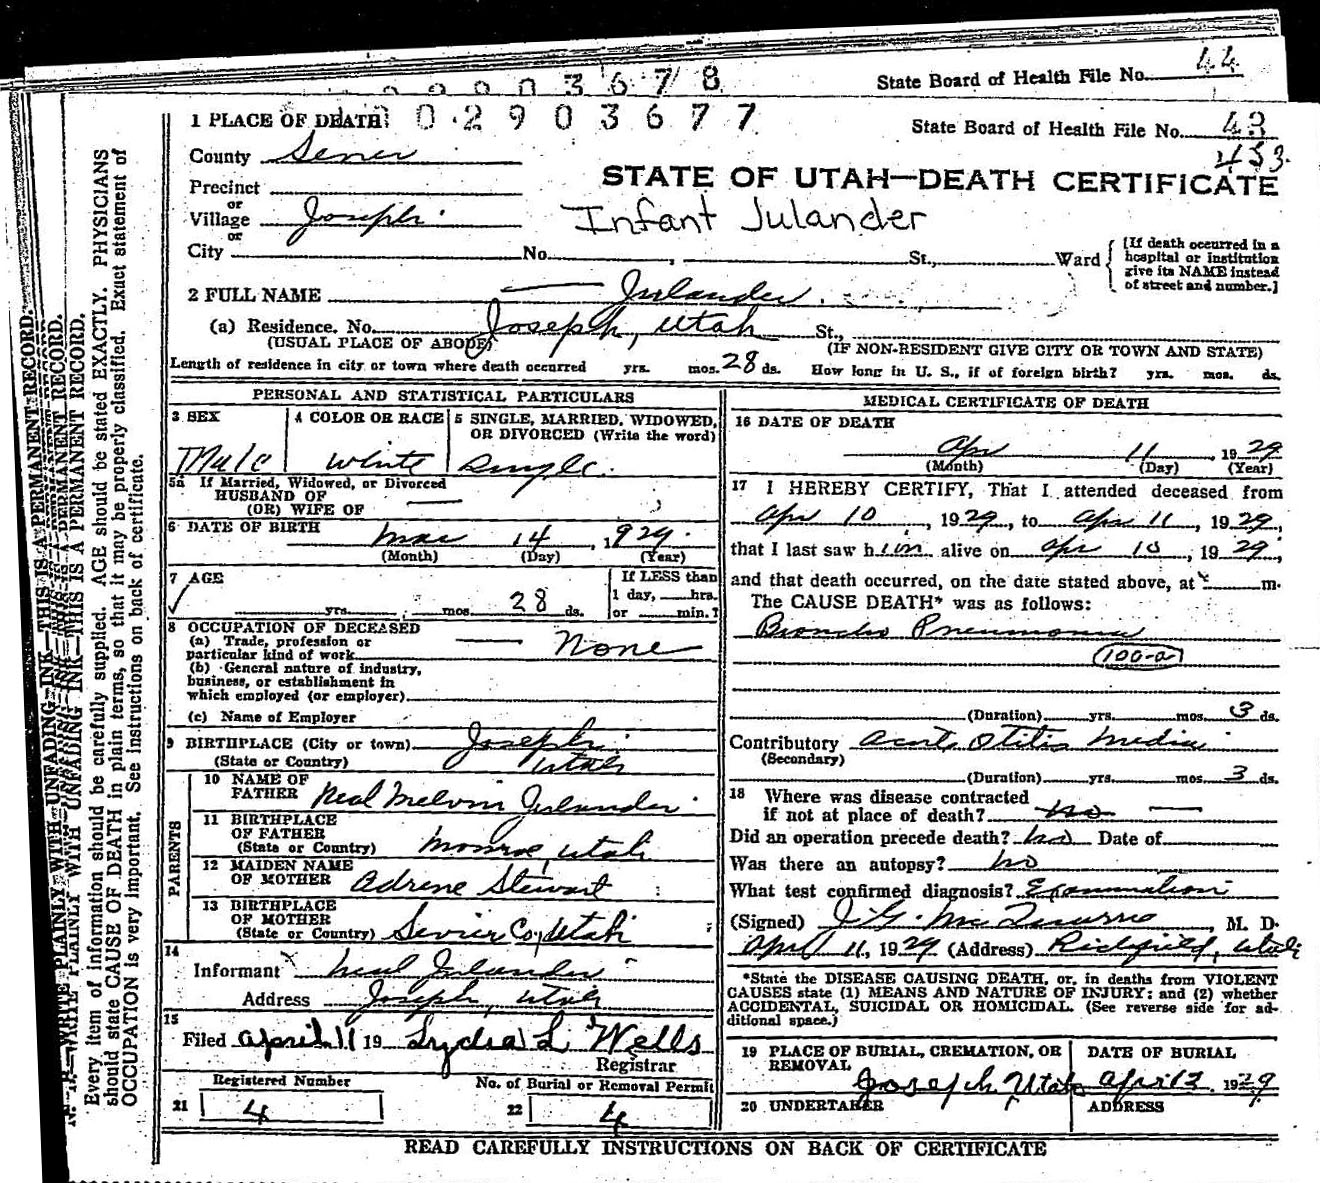 State Board of Health File No. 44
0 0 0 0 3 6 7 8
1 PLACE OF DEATH 0 2 9 0 3 6 7 7
State Board of Health File No. 43
453
County Sevier
STATE OF UTAH—DEATH CERTIFICATE
Precinct
or
Village Joseph
Infant Julander
or
City No. , St., Ward
[If death occurred in a hospital or institution give its NAME instead of street and number.]
2 FULL NAME — Julander
(a) Residence. No. Joseph, Utah St.,
(USUAL PLACE OF ABODE) (IF NON-RESIDENT GIVE CITY OR TOWN AND STATE)
Length of residence in city or town where death occurred yrs. mos. 28 ds. How long in U. S., if of foreign birth? yrs. mos. ds.
PERSONAL AND STATISTICAL PARTICULARS
3 SEX 4 COLOR OR RACE 5 SINGLE, MARRIED, WIDOWED,
OR DIVORCED (Write the word)
Male White Single
5a If Married, Widowed, or Divorced
HUSBAND OF
(OR) WIFE OF
6 DATE OF BIRTH Mar 14, 1929
(Month) (Day) (Year)
7 AGE If LESS than
1 day, hrs.
yrs. mos. 28 ds. or min.?
8 OCCUPATION OF DECEASED
(a) Trade, profession or
particular kind of work — None
(b) General nature of industry,
business, or establishment in
which employed (or employer)
(c) Name of Employer
9 BIRTHPLACE (City or town) Joseph
(State or Country) Utah
PARENTS
10 NAME OF
FATHER Neal Melvin Julander
11 BIRTHPLACE
OF FATHER
(State or Country) Monroe, Utah
12 MAIDEN NAME
OF MOTHER Adrene Stewart
13 BIRTHPLACE
OF MOTHER
(State or Country) Sevier Co, Utah
14
Informant Neal Julander
Address Joseph, Utah
15
Filed April 11 19 Lydia L Wells
Registrar
Registered Number No. of Burial or Removal Permit
21 4 22 4
MEDICAL CERTIFICATE OF DEATH
16 DATE OF DEATH
Apr 11, 1929
(Month) (Day) (Year)
17 I HEREBY CERTIFY, That I attended deceased from
Apr 10, 1929, to Apr 11, 1929,
that I last saw him alive on Apr 10, 1929,
and that death occurred, on the date stated above, at m.
The CAUSE DEATH* was as follows:
Broncho Pneumonia
100-a
(Duration) yrs. mos. 3 ds.
Contributory Acute Otitis Media
(Secondary)
(Duration) yrs. mos. 3 ds.
18 Where was disease contracted
if not at place of death? no —
Did an operation precede death? no Date of
Was there an autopsy? no
What test confirmed diagnosis? Examination
(Signed) J. G. McQuarrie, M. D.
April 11, 1929 (Address) Richfield, Utah
*State the DISEASE CAUSING DEATH, or, in deaths from VIOLENT
CAUSES state (1) MEANS AND NATURE OF INJURY; and (2) whether
ACCIDENTAL, SUICIDAL OR HOMICIDAL. (See reverse side for ad-
ditional space.)
19 PLACE OF BURIAL, CREMATION, OR
REMOVAL
DATE OF BURIAL
Joseph Utah April 2 1929
20 UNDERTAKER ADDRESS
READ CAREFULLY INSTRUCTIONS ON BACK OF CERTIFICATE
WRITE PLAINLY WITH UNFADING INK—THIS IS A PERMANENT RECORD.
Every item of information should be carefully supplied. AGE should be stated EXACTLY. PHYSICIANS
should state CAUSE OF DEATH in plain terms, so that it may be properly classified. Exact statement of
OCCUPATION is very important. See instructions on back of certificate.